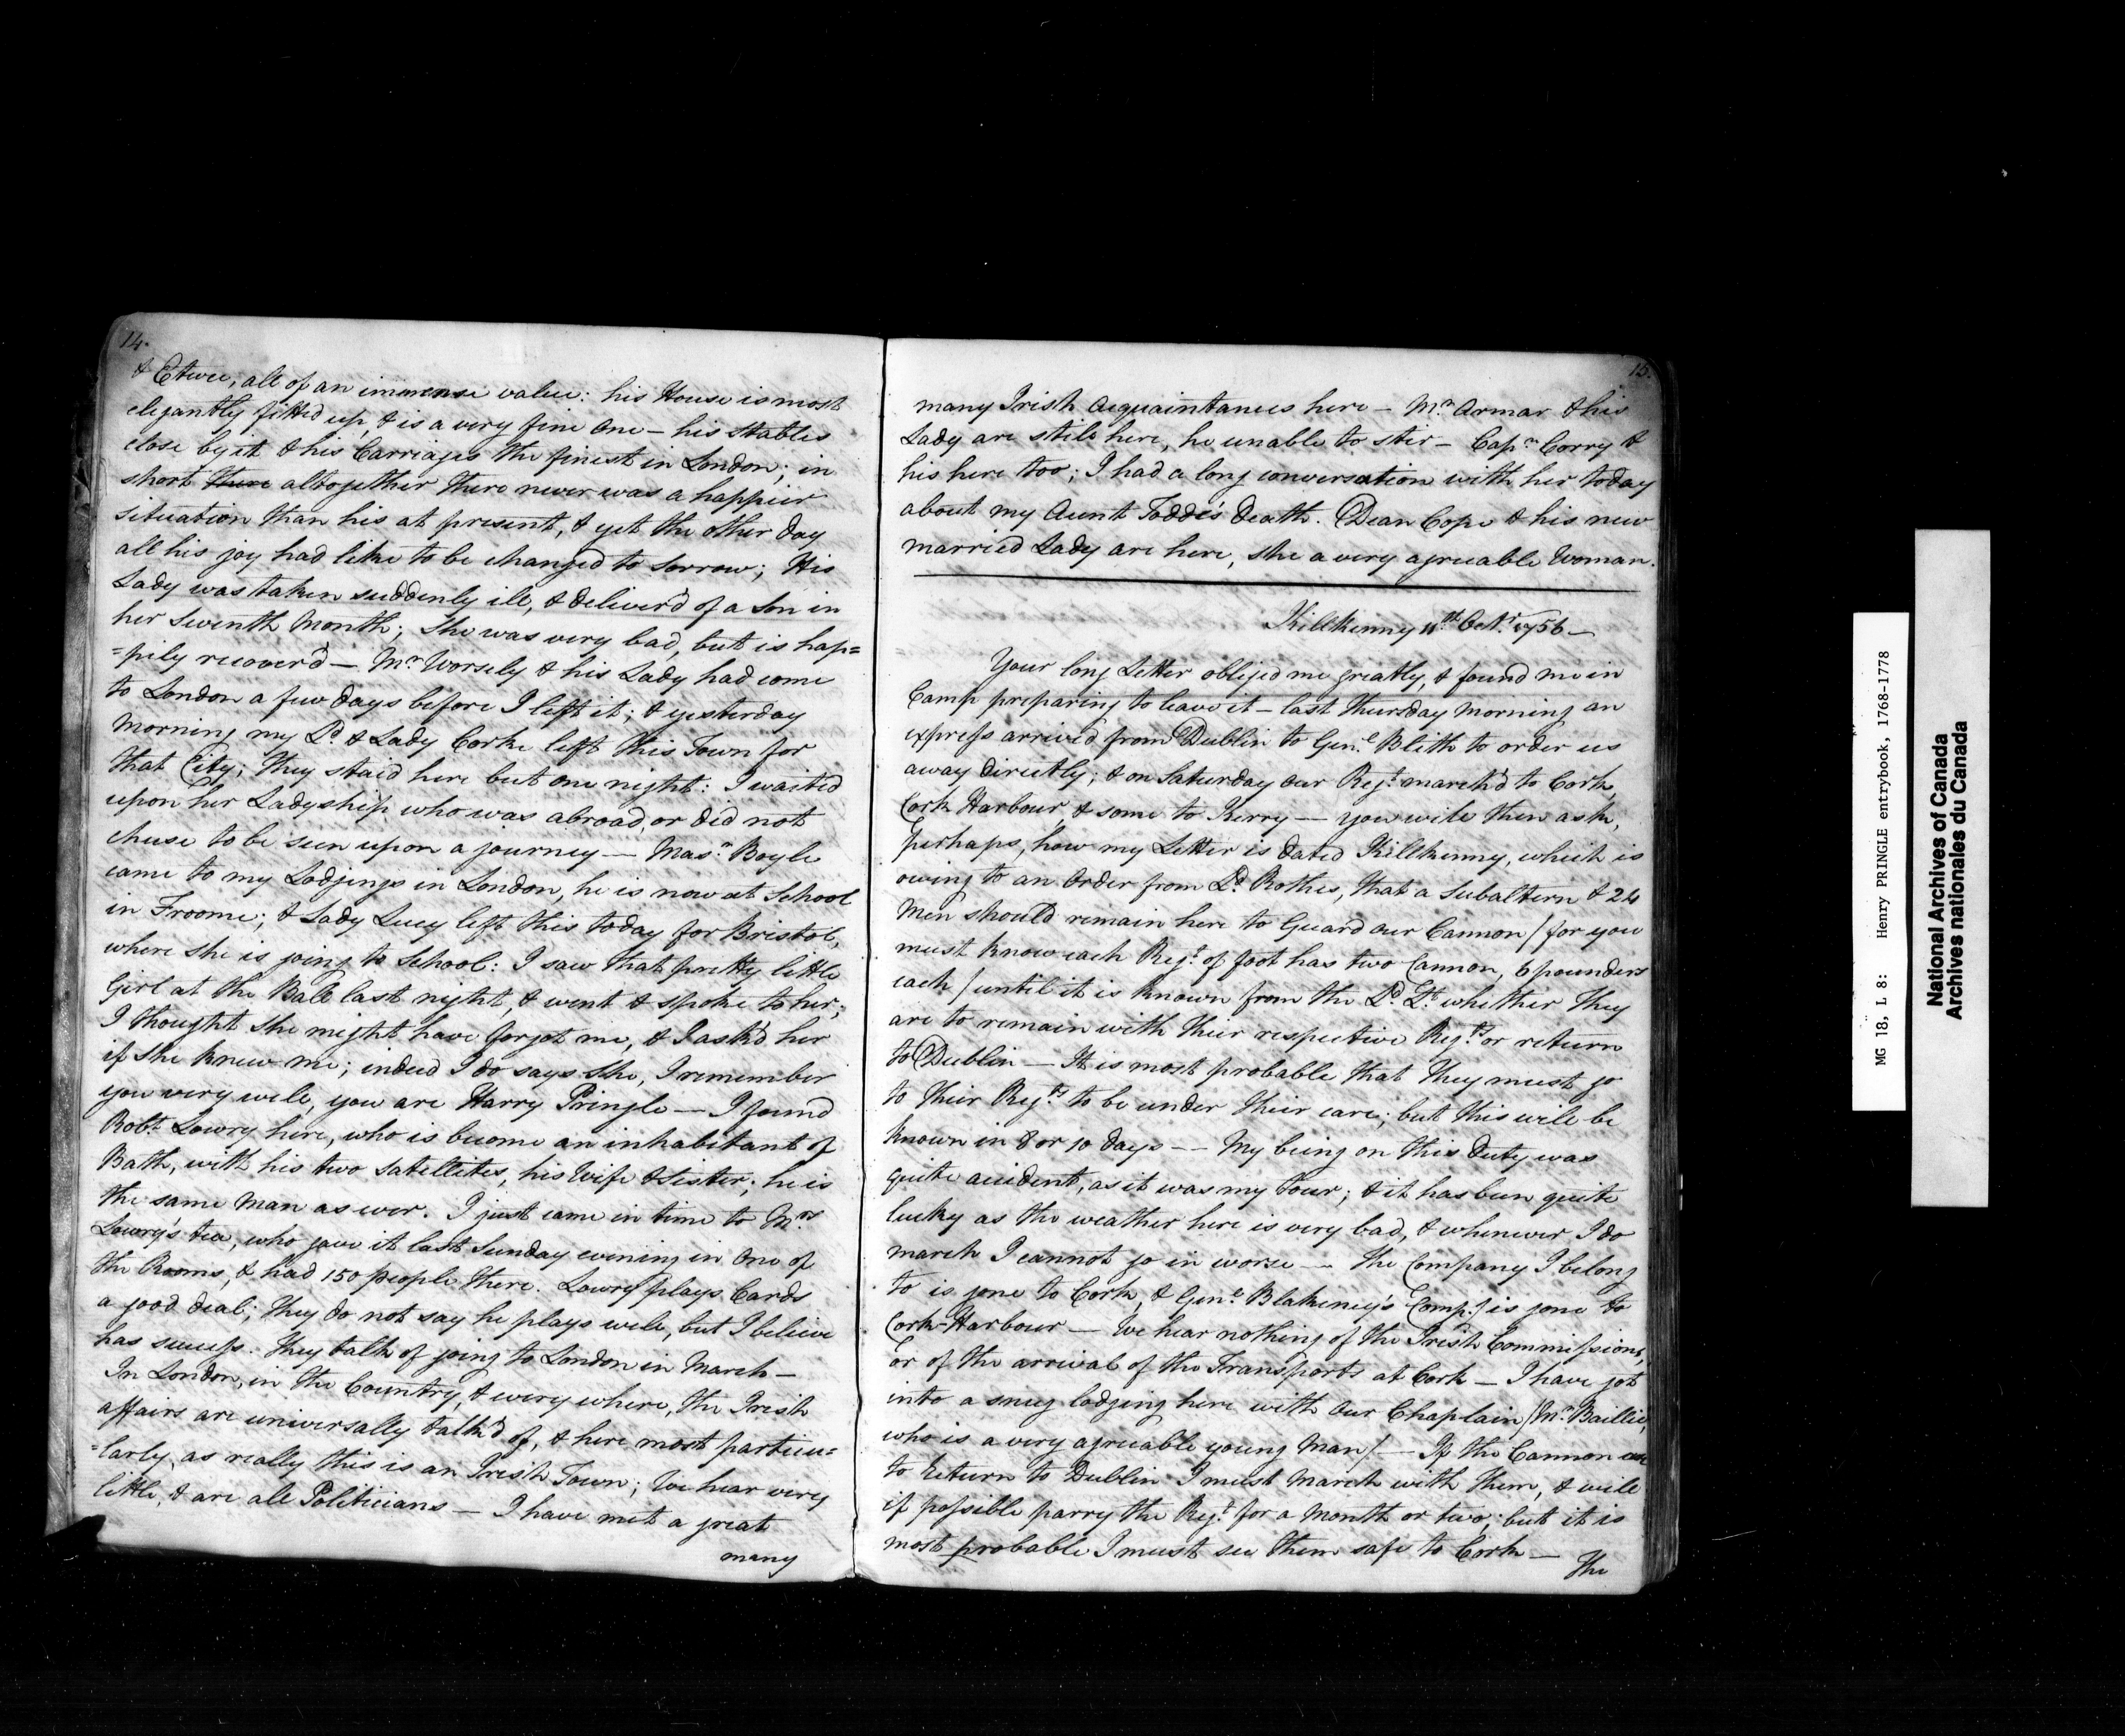 14.
& Etwee, all of an immense value: his House is most
elegantly fitted up, & is a very fine One – his Stables
close by it & his Carriages the finest in London; in
short there altogether there never was a happier
situation than his at present, & yet the other day
all his joy had like to be changed to sorrow; His
Lady was taken suddenly ill, & deliver'd of a Son in
her Seventh Month; She was very bad, but is hap=
=pily recover'd — Mr. Worsely & his Lady had come
to London a few days before I left it; & yesterday
Morning my Ld. & Lady Corke left this Town for
that City; they staid here but one night: I waited
upon her Ladyship who was abroad, or did not
chuse to be seen upon a journey — Masr. Boyle
came to my Lodgings in London, he is now at School
in Froome; & Lady Lucy left this today for Bristol,
where she is going to School: I saw that pretty little
Girl at the Ball last night, & went & spoke to her;
I thought she might have forgot me, & I ask'd her
if she knew me; indeed I do says She, I remember
you very well, you are Harry Pringle — I found
Robt. Lowry here, who is become an inhabitant of
Bath, with his two Satellites, his Wife & Sister; he is
the same Man as ever. I just came in time to Mrs.
Lowry's tea, who gave it last Sunday evening in One of
the Rooms, & had 150 people there. Lowry plays Cards
a good deal; they do not say he plays well, but I believe
has success. They talk of going to London in March –
In London, in the Country, & every where, the Irish
affairs are universally talk'd of, & here most particu=
=larly, as really this is an Irish Town; We hear very
little, & are all Politicians — I have met a great
many
15.
many Irish Acquaintances here – Mr. Armar & his
Lady are still here, he unable to stir – Capn. Corry &
his here too; I had a long conversation with her today
about my Aunt Todd's death. Dean Cope & his new
married Lady are here, she a very agreeable Woman.
Killkenny 11th. Octr. 1756 —
Your long Letter obliged me greatly, & found me in
Camp preparing to leave it – last Thursday Morning an
express arrived from Dublin to Genl. Blith to order us
away directly; & on Saturday our Regt. march'd to Cork,
Cork Harbour, & some to Kerry — you will then ask,
perhaps, how my Letter is dated Killkenny, which is
owing to an Order from Ld. Rothes, that a Subaltern & 24
Men should remain here to Guard our Cannon / for you
must know each Regt. of foot has two Cannon, 6 pounders
each / until it is known from the Ld. Lt. whether they
are to remain with their respective Regts. or return
to Dublin — It is most probable that they must go
to their Regts. to be under their care; but this will be
known in 8 or 10 days -- My being on this Duty was
quite accident, as it was my Tour; & it has been quite
lucky as the weather here is very bad, & whenever I do
march I cannot go in worse — The Company I belong
to is gone to Cork, & Genl. Blakeney's Compy. is gone to
Cork-Harbour — We hear nothing of the Irish Commissions,
or of the arrival of the Transports at Cork — I have got
into a snug lodging here with our Chaplain / Mr. Baillie,
who is a very agreeable young Man / — If the Cannon are
to return to Dublin I must March with them, & will
if possible parry the Regt. for a Month or two; but it is
most probable I must see them safe to Cork —
The
MG 18, L 8: Henry PRINGLE entrybook, 1768-1778
National Archives of Canada
Archives nationales du Canada